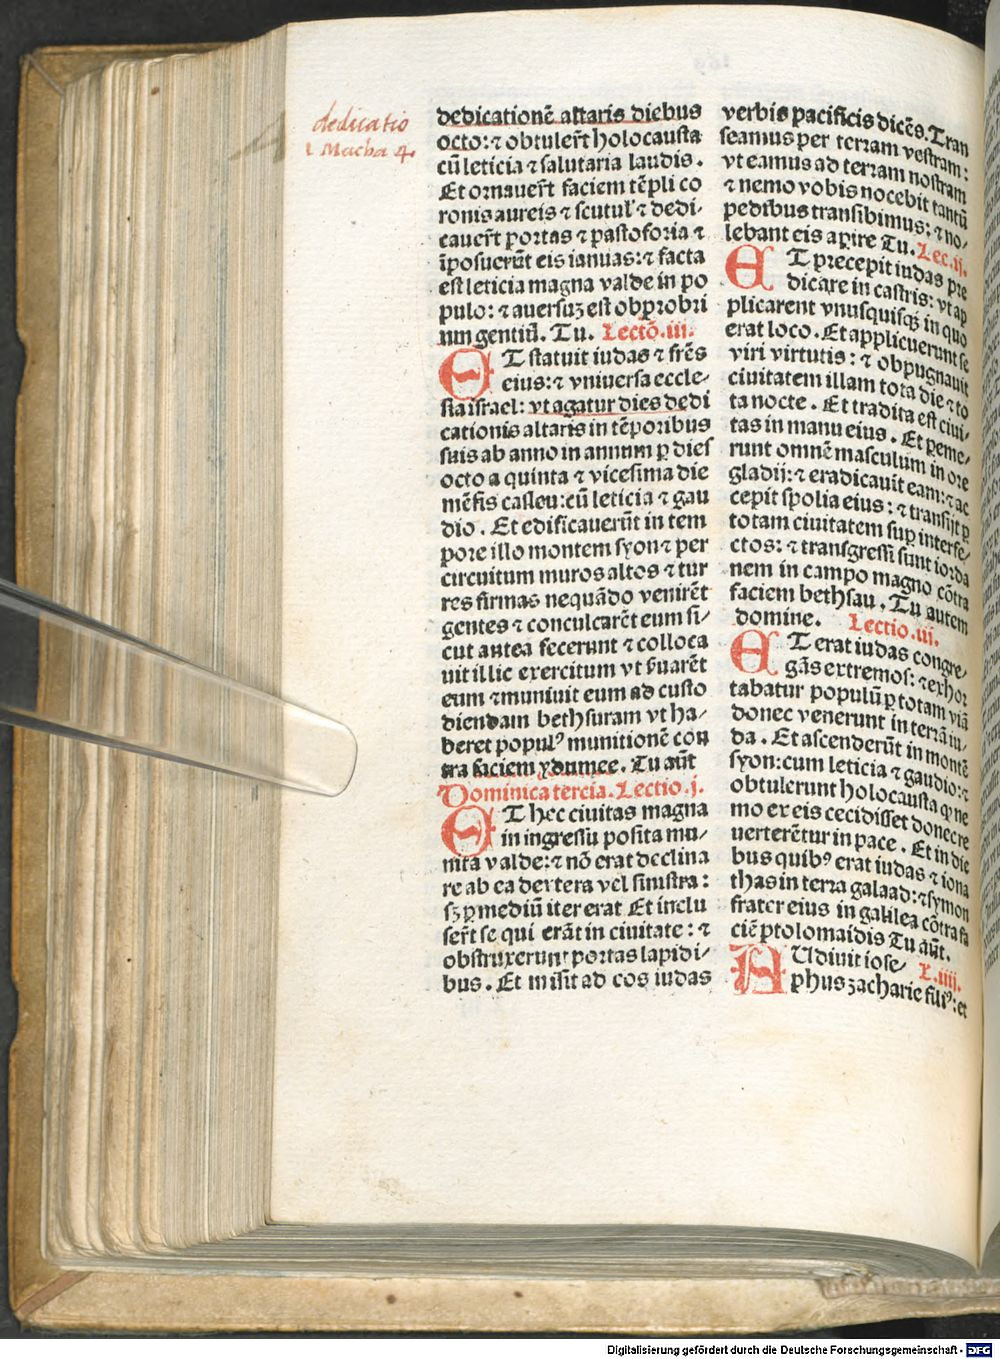 dedicatio
1 Macha 4.
dedicationē altaris diebus
octo: ⁊ obtulert̄ holocausta
cū leticia ⁊ salutaria laudis.
Et ornauert̄ faciem tēpli co
ronis aureis ⁊ scutul' ⁊ dedi-
cauert̄ portas ⁊ pastoforia ⁊
īposuerūt eis ianuas: ⁊ facta
est leticia magna valde in po
pulo: ⁊ auersuʒ est obprobri
um gentiū. Tu. Lectō.iii.
ET statuit iudas ⁊ fr̄es
eius: ⁊ vniuersa eccle-
sia israel: vt agatur dies dedi
cationis altaris in tēporibus
suis ab anno in annum ꝑ dies
octo a quinta ⁊ vicesima die
mēsis casleu: cū leticia ⁊ gau
dio. Et edificauerūt in tem
pore illo montem syon ⁊ per
circuitum muros altos ⁊ tur
res firmas nequādo venirēt
gentes ⁊ conculcarēt eum si-
cut antea fecerunt ⁊ colloca
uit illic exercitum vt s̄uarēt
eum ⁊ muniuit eum ad custo
diendam bethsuram vt ha-
beret popul⁹ munitionē con
tra faciem ydumee. Tu aūt
Dominica tercia. Lectio.j.
ET hec ciuitas magna
in ingressu posita mu-
nita valde: ⁊ nō erat declina
re ab ea dextera vel sinistra:
sʒ ꝑ mediū iter erat Et inclu
sert̄ se qui erāt in ciuitate: ⁊
obstruxerunt portas lapidi-
bus. Et misit ad eos iudas
verbis pacificis dicēs. Tran
seamus per terram vestram:
vt eamus ad terram nostram
⁊ nemo vobis nocebit tantū
pedibus transibimus: ⁊ no-
lebant eis aꝑire Tu. Lec.ij.
ET precepit iudas pre
dicare in castris: vt ap
plicarent vnusquisqʒ in quo
erat loco. Et applicuerunt se
viri virtutis: ⁊ obpugnauit
ciuitatem illam tota die ⁊ to
ta nocte. Et tradita est ciui-
tas in manu eius. Et ꝑeme-
runt omnē masculum in ore
gladij: ⁊ eradicauit eam: ⁊ ac
cepit spolia eius: ⁊ transijt ꝑ
totam ciuitatem suꝑ interfe-
ctos: ⁊ transgressi sunt iorda
nem in campo magno cōtra
faciem bethsau. Tu autem
domine. Lectio.iii.
ET erat iudas congre-
gās extremos: ⁊ exhor
tabatur populū ꝑ totam viā
donec venerunt in terrā iu-
da. Et ascenderūt in montē
syon: cum leticia ⁊ gaudio: ⁊
obtulerunt holocausta ꝙ ne
mo ex eis cecidisset donec re
uerterētur in pace. Et in die
bus quib⁹ erat iudas ⁊ iona
thas in terra galaad: ⁊ symon
frater eius in galilea cōtra fa
ciē ptolomaidis Tu aūt.
AUdiuit iose- L.iiij.
phus zacharie fili⁹: et
Digitalisierung gefördert durch die Deutsche Forschungsgemeinschaft - DFG